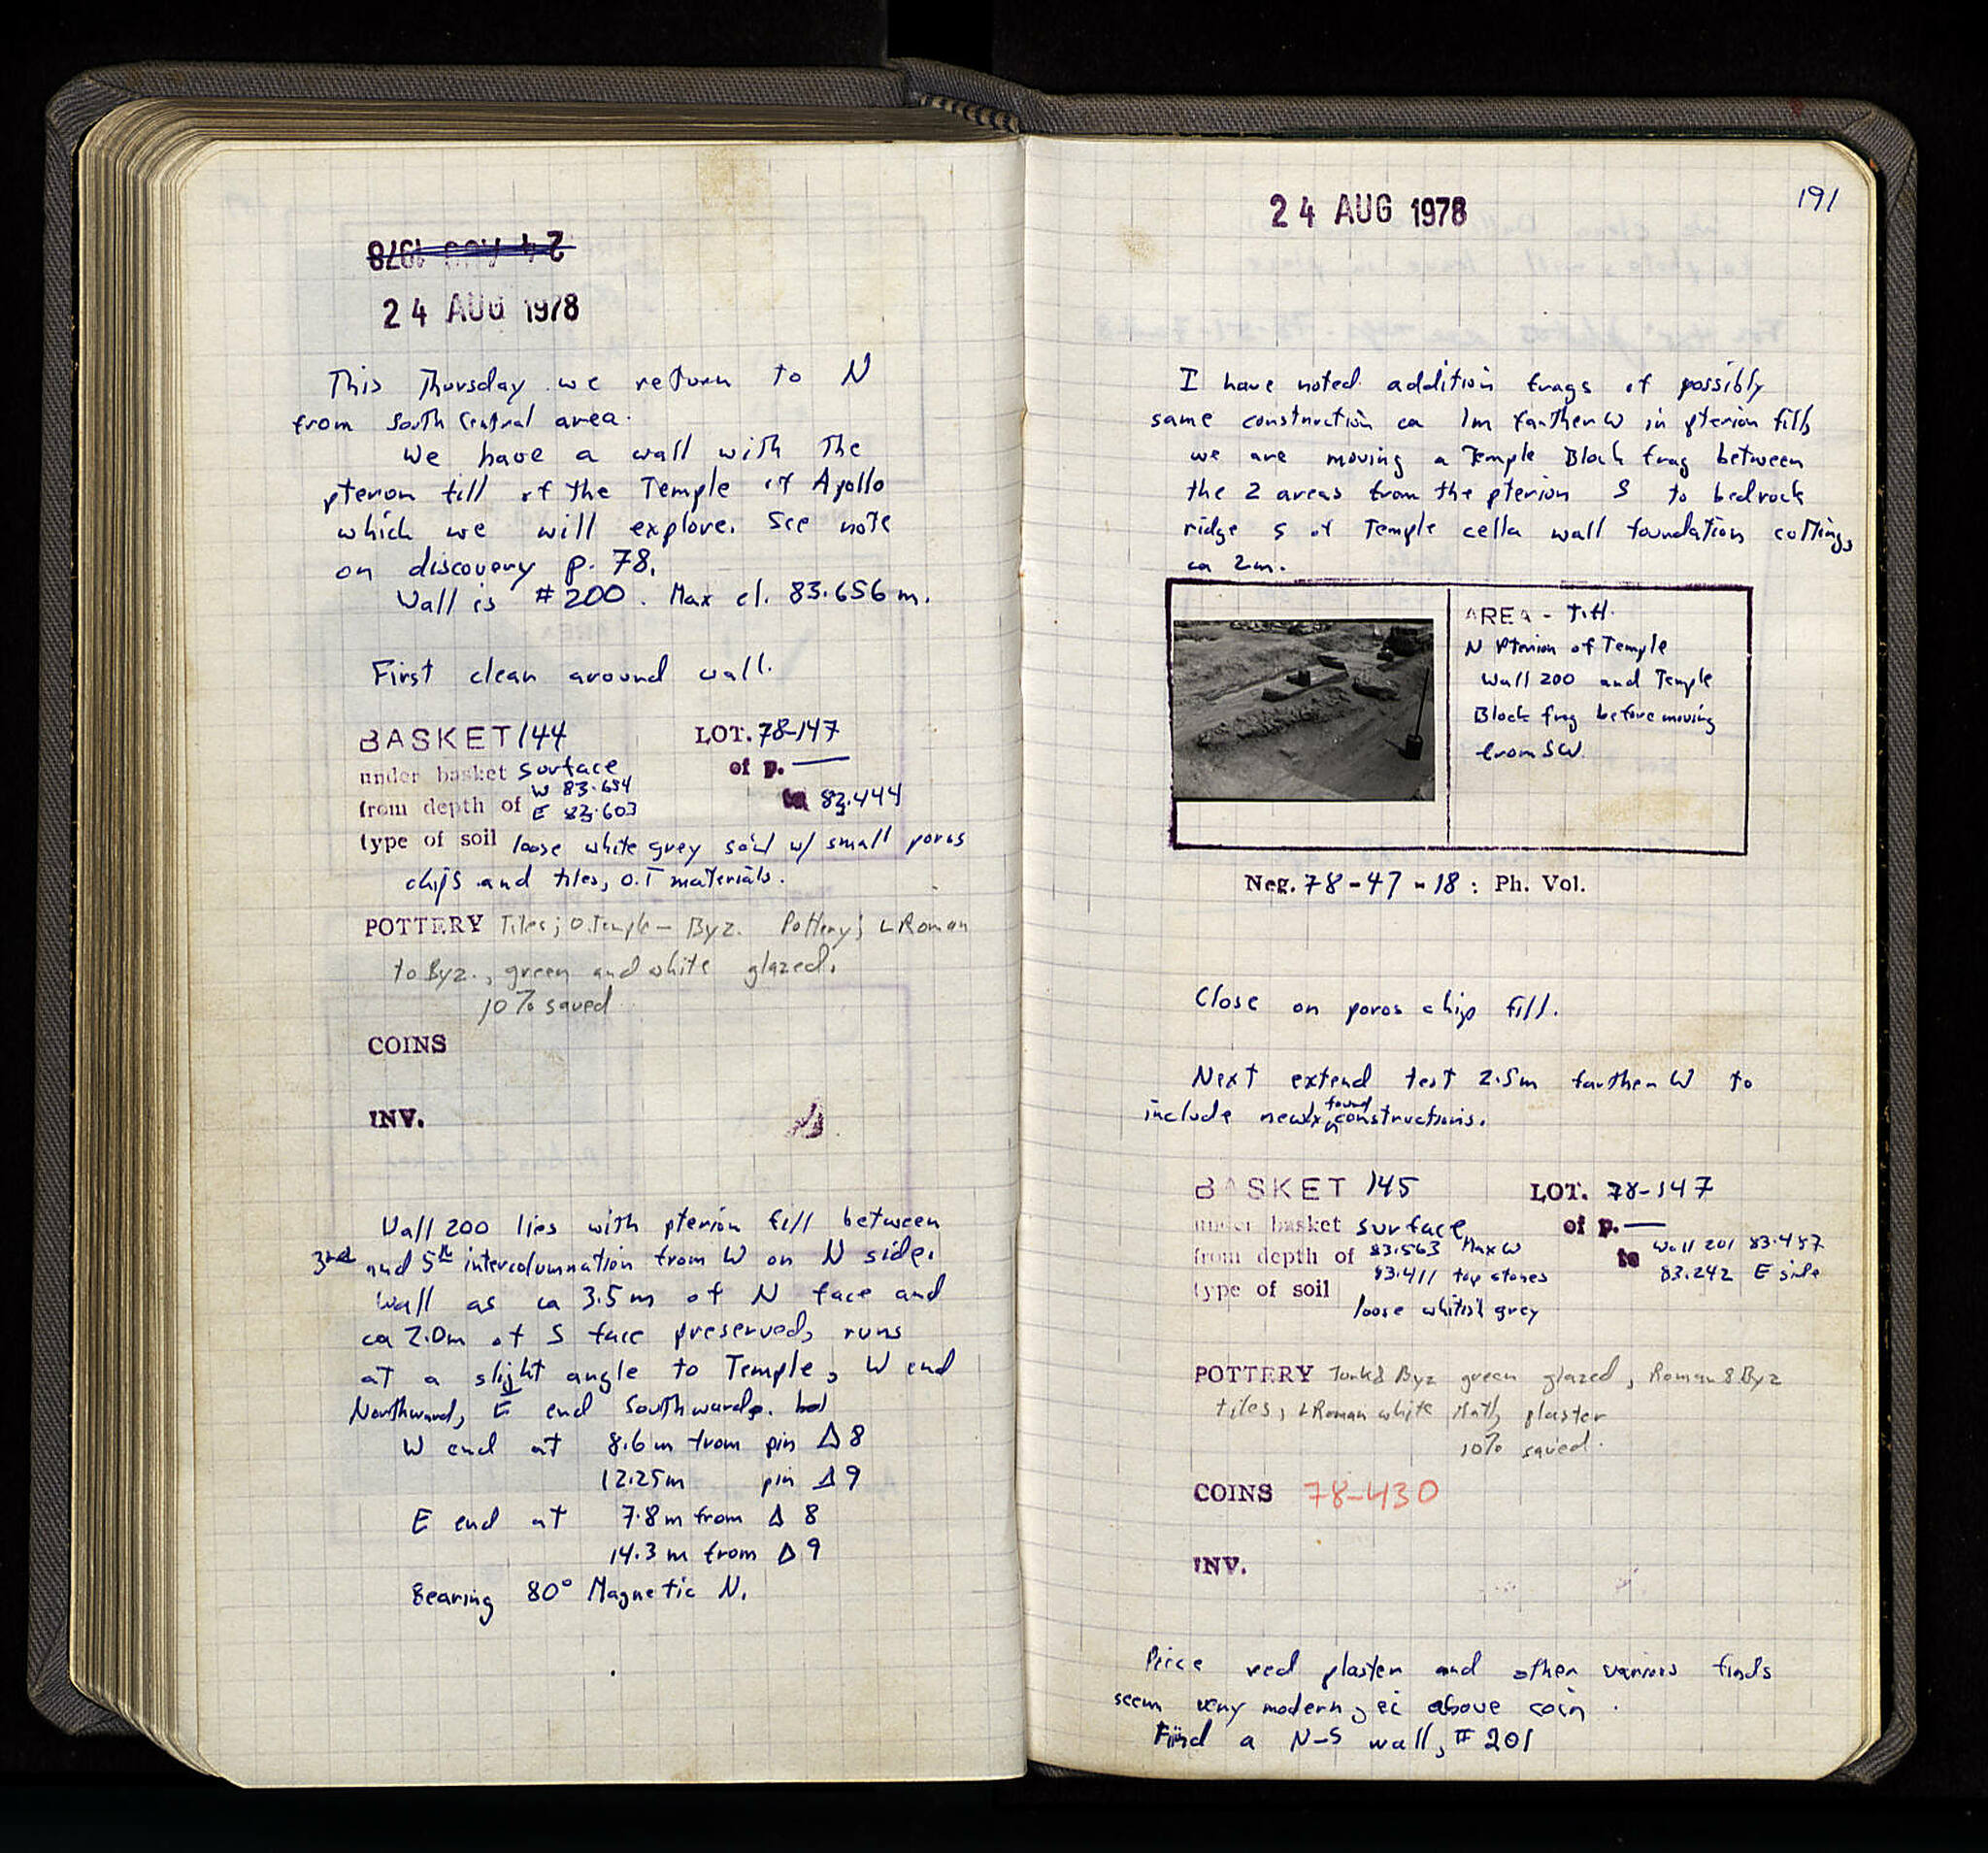 24 AUG 1978
24 AUG 1978
This Thursday we return to N
from South Central area.
We have a wall with the
pteron fill of the Temple of Apollo
which we will explore. See note
on discovery p. 78.
Wall is #200. Max el. 83.656 m.
First clean around wall.
BASKET 144 LOT. 78-147
under basket surface of p. —
W 83.654
from depth of E 83.603 to 83.444
type of soil loose white grey soil w/ small poros
chips and tiles, O.T materials.
POTTERY Tiles; O.Temple - Byz. Pottery; L Roman
to Byz., green and white glazed.
10% saved
COINS
INV.
Wall 200 lies with pterion fill between
3rd and 5th intercolumnation from W on N side.
Wall as ca 3.5m of N face and
ca 2.0m of S face preserved, runs
at a slight angle to Temple, W end
Northward, E end Southward.
W end at 8.6m from pin Δ8
12.25m pin Δ9
E end at 7.8m from Δ 8
14.3 m from Δ9
Bearing 80° Magnetic N.
24 AUG 1978
191
I have noted addition frags of possibly
same construction ca 1m farther W in pterion fill,
we are moving a Temple Block frag between
the 2 areas from the pterion S to bedrock
ridge S of Temple cella wall foundation cuttings
ca 2m.
AREA - T.H.
N Pterion of Temple
Wall 200 and Temple
Block frag before moving
from SW.
Neg. 78-47-18 : Ph. Vol.
Close on poros chip fill.
Next extend test 2.5m farther W to
found
include newly constructions.
BASKET 145 LOT. 78-147
under basket surface of p. —
from depth of 83.563 Max W to Wall 201 83.487
83.411 top stones 83.242 E side
type of soil
loose whitish grey
POTTERY Turk & Byz green glazed, Roman & Byz
tiles, L Roman white plaster
10% saved.
COINS 78-430
INV.
Piece red plaster and other various finds
seem very modern, ei above coin.
Find a N-S wall, #201